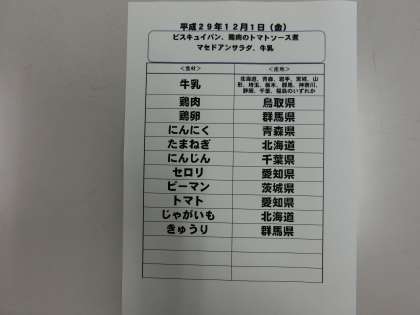 平成29年12月1日（金）
ビスキュイパン、鶏肉のトマトソース煮
マセドアンサラダ、牛乳
＜食材＞ ＜産地＞
牛乳 北海道、青森、岩手、宮城、山
形、埼玉、栃木、群馬、神奈川、
静岡、千葉、福島のいずれか
鶏肉 鳥取県
鶏卵 群馬県
にんにく 青森県
たまねぎ 北海道
にんじん 千葉県
セロリ 愛知県
ピーマン 茨城県
トマト 愛知県
じゃがいも 北海道
きゅうり 群馬県